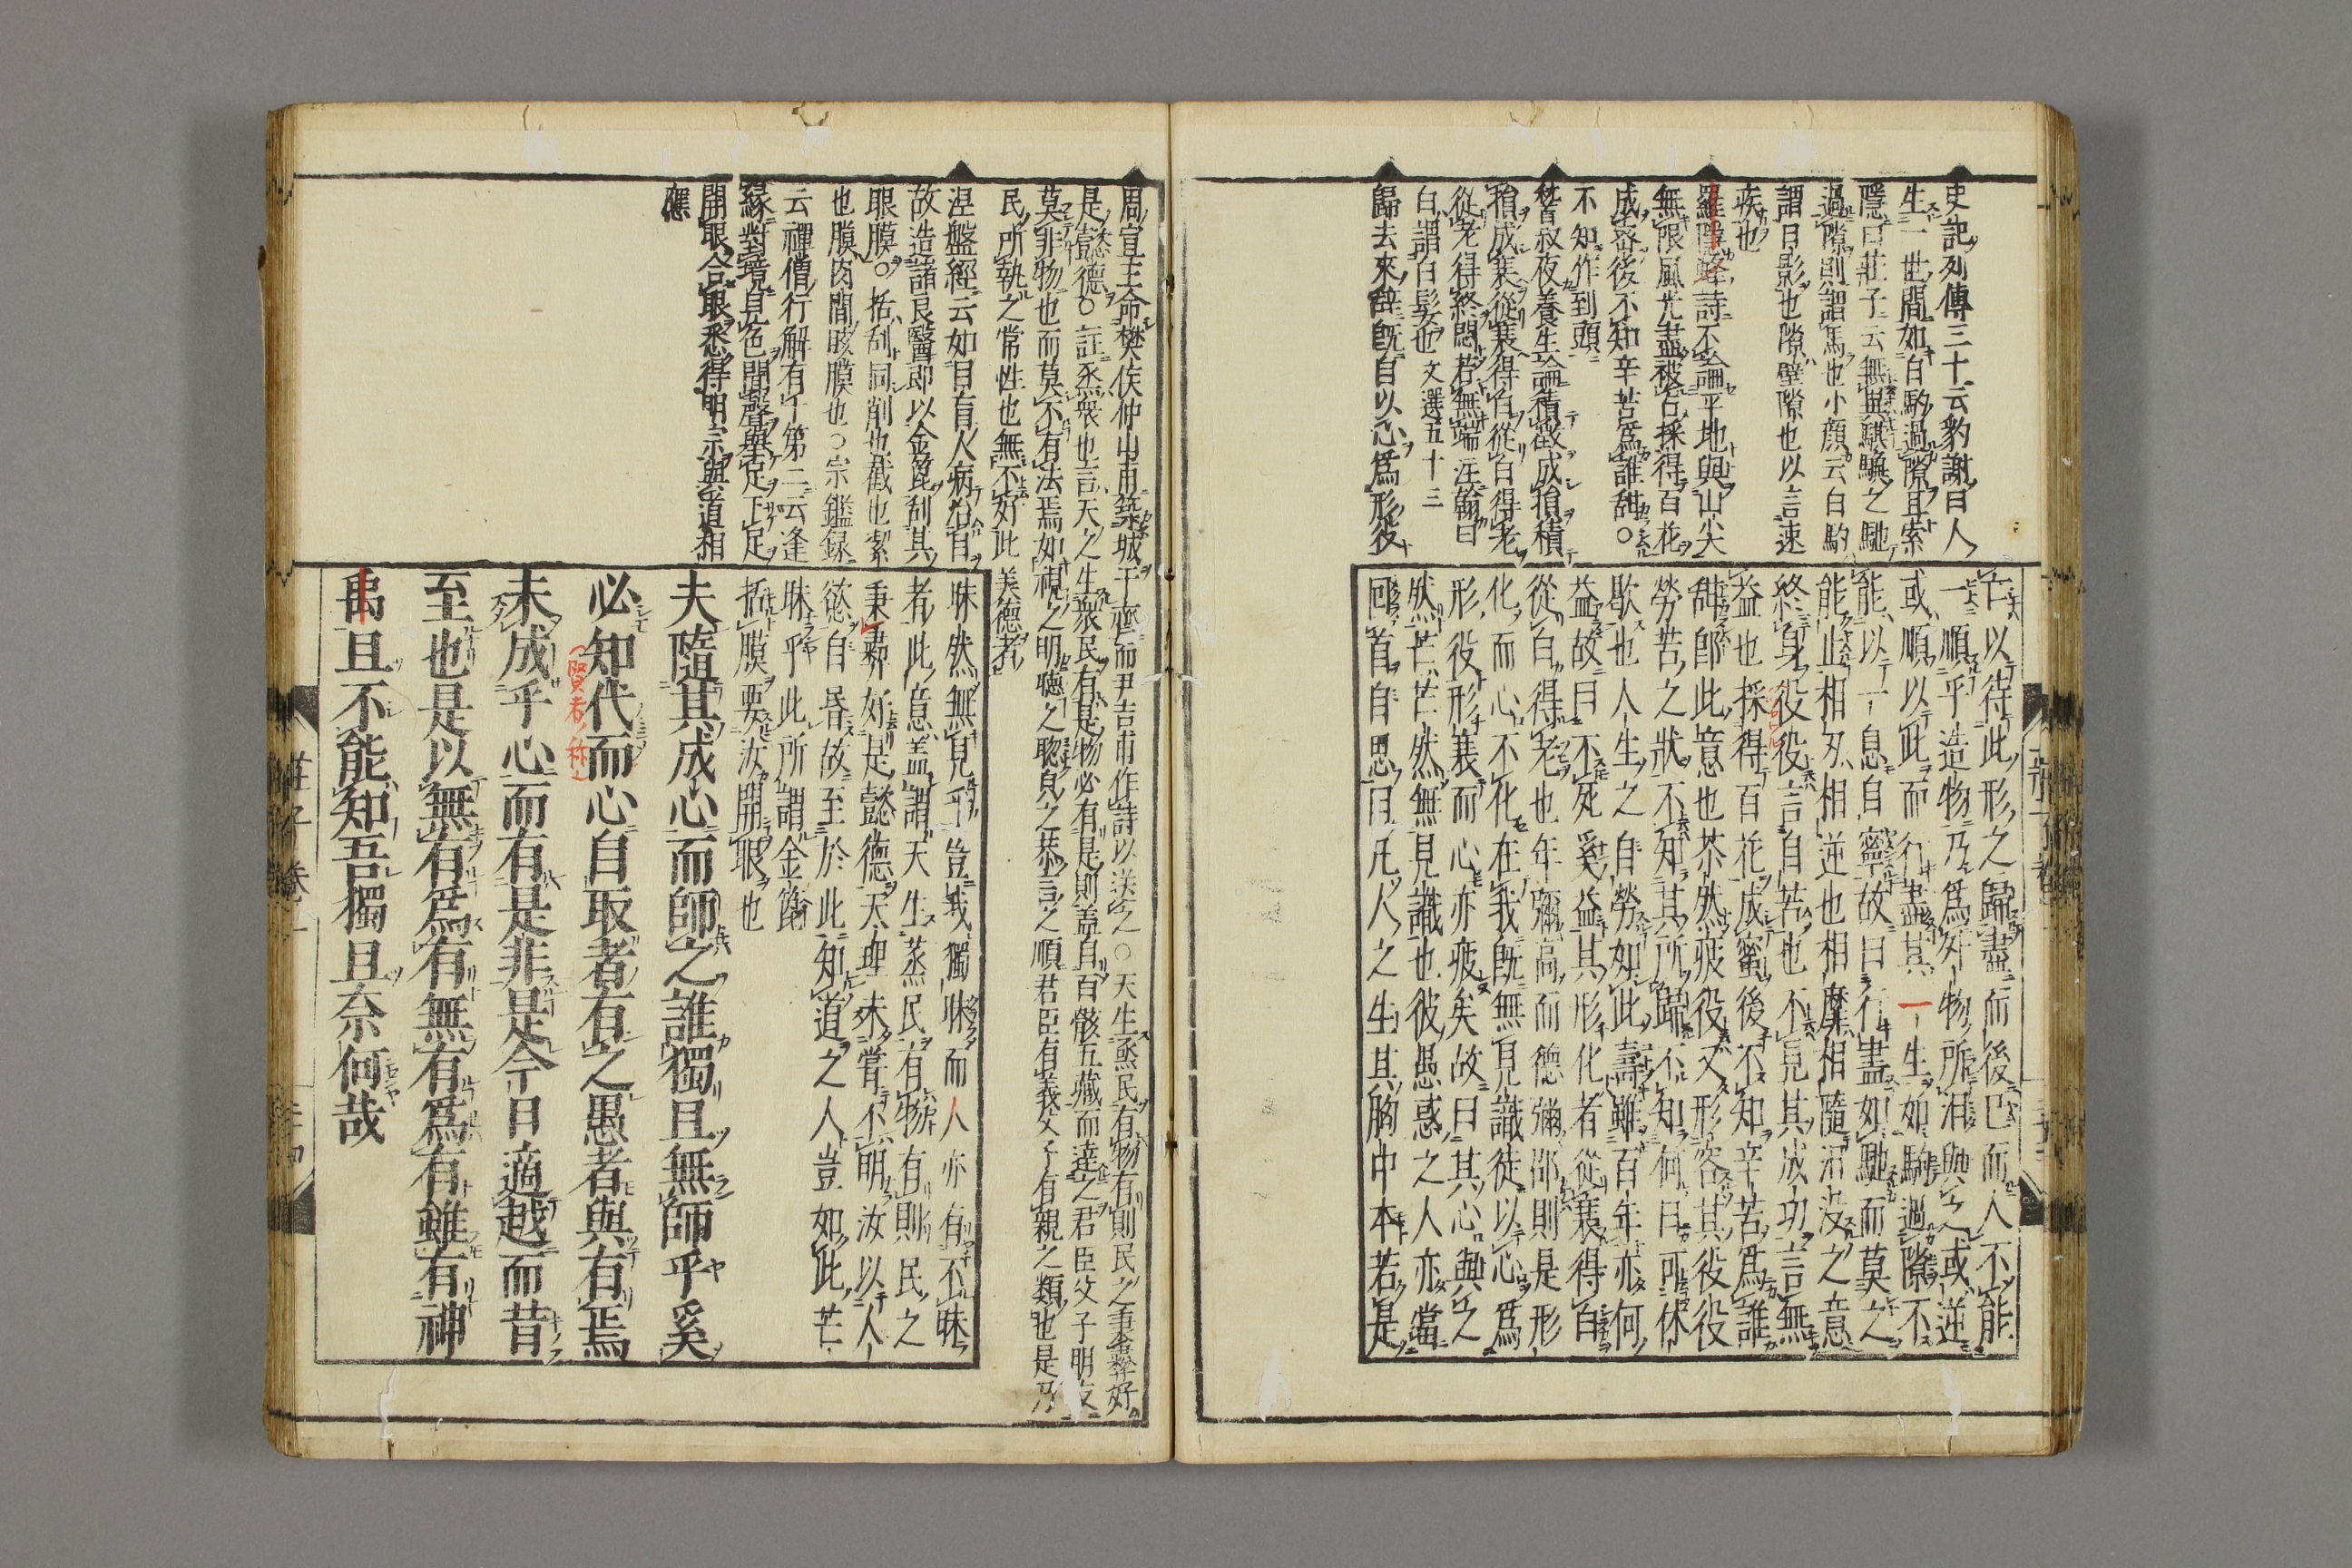 史記列傳三十云豹謝曰人
生一世間如白駒過隙耳索
隱曰莊子云無異騏驥之馳
過隙則謂馬也小顏云白駒
謂日影也隙壁隙也以言速
疾也
羅隱蜂詩不論平地與山尖
無限風光盡被占採得百花
成蜜後不知辛苦爲誰甜○
不知作到頭
嵆叔夜養生論積微成損積
損成衰從衰得白從白得老
從老得終悶若無端注翰曰
白謂白髮也文選五十三
歸去來辭既自以心爲形役
亡以待此形之歸盡而後已而人不能
一順乎造物乃爲外物所汨與之或逆
或順以此而行盡其一生如駒過隙不
能以一息自寧故曰行盡如馳而莫之
能止相刃相逆也相靡相隨汨没之意
終身役役言自苦也不見其成功言無
益也採得百花成蜜後不知辛苦爲誰
甜卽此意也苶然疲役又形容其役役
勞苦之狀不知其所歸不知何日可休
歇也人生之自勞如此壽雖百年亦何
益故曰不死奚益其形化者從衰得白
從白得老也年彌高而德彌邵則是形
化而心不化在我既無見識徒以心爲
形役形衰而心亦疲矣故曰其心與之
然芒芒然無見識也彼愚惑之人亦當
回首自思曰凡人之生其胸中本若是
周宣王命樊侯仲山甫築城于齊而尹吉甫作詩以送之○天生烝民有物有則民之秉彝好
是懿德○註烝衆也言天之生衆民有是物必有是則盖自百骸五藏而達之君臣父子明友
莫非物也而莫不有法焉如視之明聽之聰貌之恭言之順君臣有義父子有親之類也是乃
民所執之常性也無不好此美德者
涅盤經云如目有人病治目
故造諸良醫即以金箆刮其
眼膜○括刮同削也戳也絜
也膜肉間胲膜也○宗鑑録
云禪僧行解有十第二云逢
緣對境見色聞聲舉足下足
開眼合眼悉得明宗與道相
應
昧然無見乎豈我獨昧而人亦有不昧
者此意盖謂天生蒸民有物有則民之
秉彝好是懿德天理未嘗不明汝以人
慾自昏故至於此知道之人豈如此芒
昧乎此所謂金篦
括膜要汝開眼也
夫隨其成心而師之誰獨且無師乎奚
必知代而心自取者有之愚者與有焉
賢者ノ称也
未成乎心而有是非是今日適越而昔
至也是以無有爲有無有爲有雖有神
禹且不能知吾獨且奈何哉
莊子 卷一